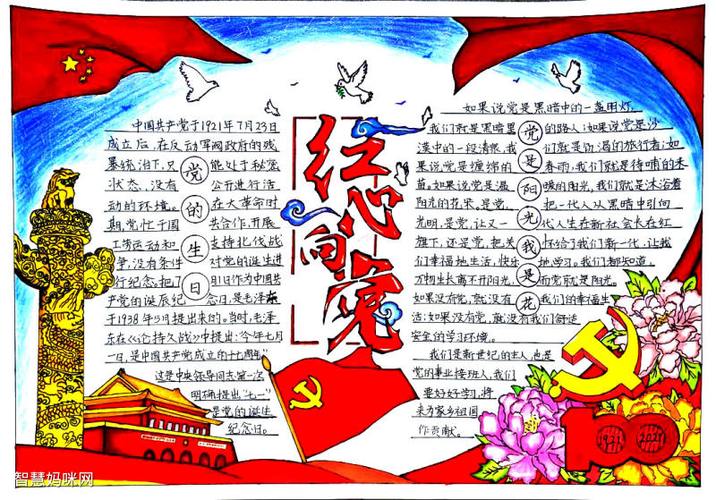 红心向党
中国共产党于1921年7月23日
成立后,在反动军阀政府的残
暴统治下,只 能处于秘密
状态,没有 公开进行活
动的环境。 在大革命时
期,党忙于国 共合作,开展
工农运动和 支持北伐战
争,没有条件 对党的诞生进
行纪念,把7 月1日作为中国共
产党的诞辰纪 念日,是毛泽东
于1938年5月提出来的。当时,毛泽
东在《论持久战》中提出:"今年七月
一日,是中国共产党成立的十七周年"
这是中央领导同志第一次
明确提出"七一"
是党的诞生
纪念日。
党的生日
如果说党是黑暗中的一盏明灯,
我们就是黑暗里 的路人;如果说党是沙
漠中的一段清泉,我 们就是劲渴的旅行者;如
果说党是缠绵的 春雨,我们就是待哺的禾
苗。如果说党是温 暖的阳光,我们就是沐浴着
阳光的花朵。是党, 把一代人从黑暗中引向
光明,是党,让又一 代人生在新社会长在红
旗下,还是党,把关 怀给予我们新一代,让我
们幸福地生活,快乐 地学习。我们都知道,
万物生长离不开阳光, 而党就是阳光。
如果没有党,就没有 我们的幸福生
活;如果没有党,就没有我们舒适
安全的学习环境。
我们是新世纪的主人,也是
党的事业接班人,我们
要好好学习,将
来为家乡祖国
作贡献。
党是阳光我是花
1921 2021
100
智慧妈咪网